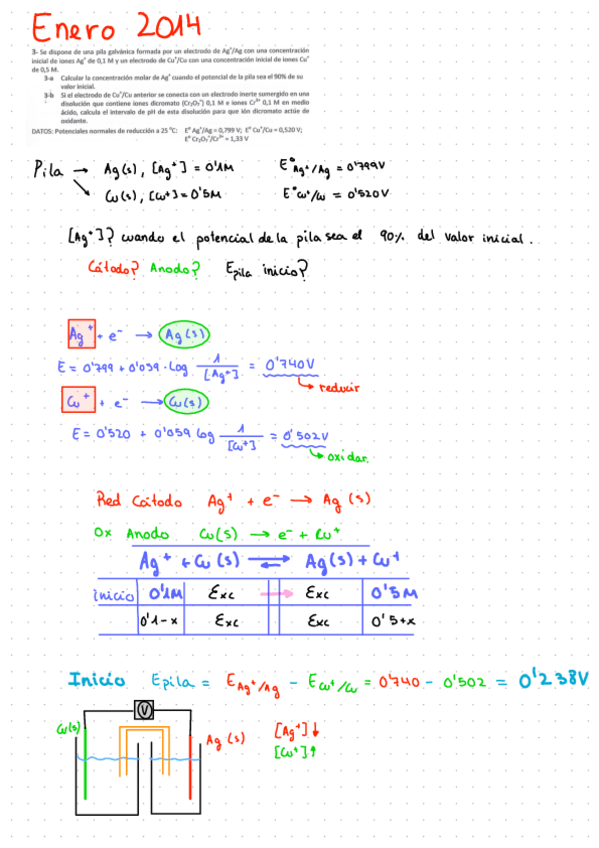 Enero 2014
3- Se dispone de una pila galvánica formada por un electrodo de Ag⁺/Ag con una concentración
inicial de iones Ag⁺ de 0,1 M y un electrodo de Cu⁺/Cu con una concentración inicial de iones Cu⁺
de 0,5 M.
3-a Calcular la concentración molar de Ag⁺ cuando el potencial de la pila sea el 90% de su
valor inicial.
3-b Si el electrodo de Cu⁺/Cu anterior se conecta con un electrodo inerte sumergido en una
disolución que contiene iones dicromato (Cr₂O₇²⁻) 0,1 M e iones Cr³⁺ 0,1 M en medio
ácido, calcula el intervalo de pH de esta disolución para que ión dicromato actúe de
oxidante.
DATOS: Potenciales normales de reducción a 25 °C: E° Ag⁺/Ag = 0,799 V; E° Cu⁺/Cu = 0,520 V;
E° Cr₂O₇²⁻/Cr³⁺ = 1,33 V
Pila → Ag(s), [Ag⁺] = 0'1M E°Ag⁺/Ag = 0'799V
Cu(s), [Cu+] = 0'5M E°cu⁺/cu = 0'520V
[Ag⁺]? cuando el potencial de la pila sea el 90% del valor inicial.
Cátodo? Anodo? Epila inicio?
Ag⁺ + e⁻ → Ag(s)
E = 0'799 + 0'059 · Log 1/[Ag⁺] = 0'740V
reducir
Cu⁺ + e⁻ → Cu(s)
E = 0'520 + 0'059 log 1/[Cu+] = 0'502V
oxidar.
Red Cátodo Ag⁺ + e⁻ → Ag (s)
Ox Anodo Cu(s) → e⁻ + Cu⁺
Ag⁺ + Cu (s) ⇌ Ag(s) + Cu⁺
inicio 0'1M Exc → Exc 0'5M
0'1-x Exc Exc 0'5+x
Inicio Epila = EAg⁺/Ag - Ecu⁺/cu = 0'740 - 0'502 = 0'238V
V
Cu(s)
Ag (s)
[Ag⁺]↓
[Cu⁺]↑